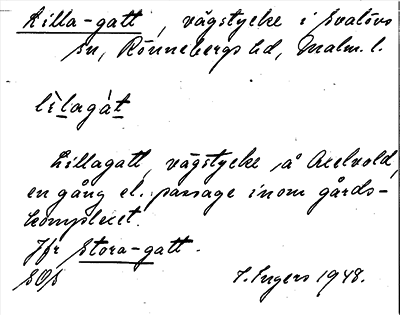 Lilla-gatt, vägstycke i Svalövs
sn, Rönnebergs hd, Malm. l.
lìlagát
Lillagatt, vägstycke å Axelvold,
en gång el. passage inom gårds-
komplexet.
Jfr Stora-gatt.
SOS
I. Ingers 1948.